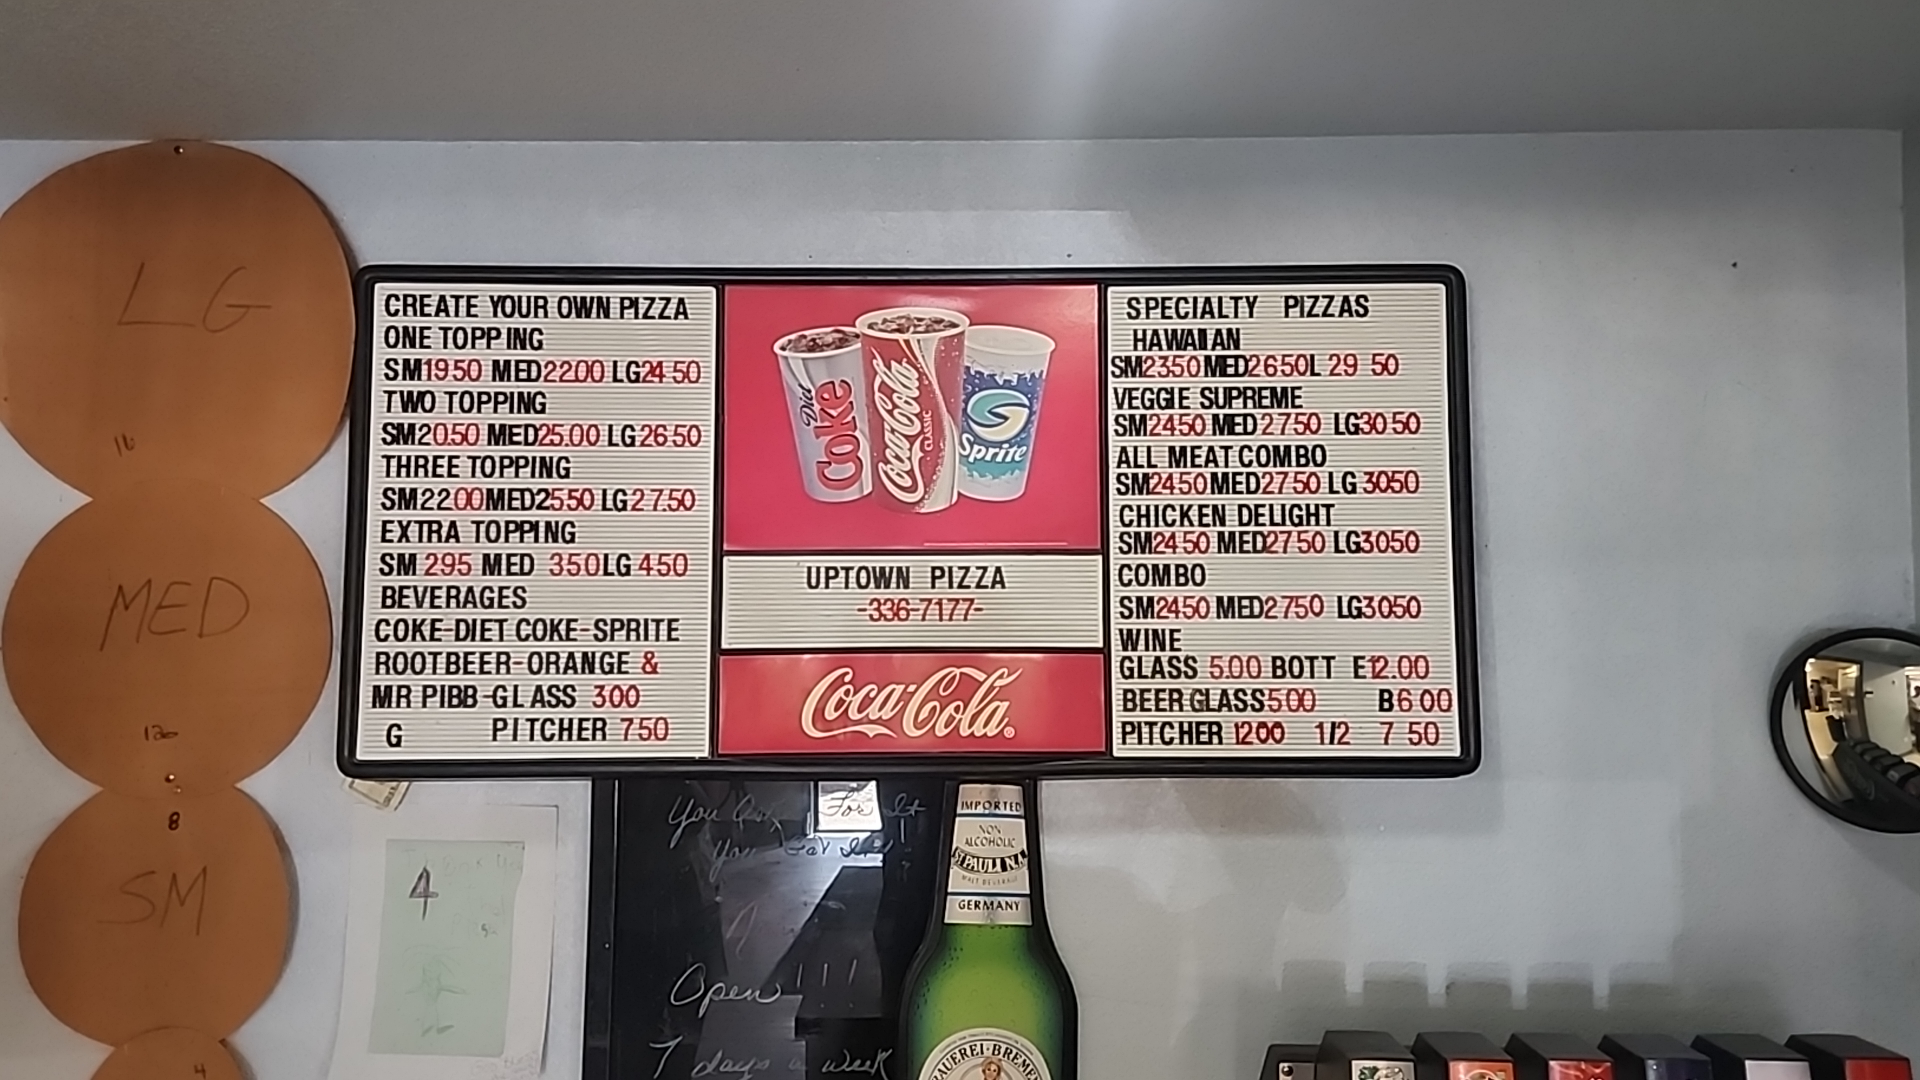 LG
16
MED
12
8
SM
4
CREATE YOUR OWN PIZZA
ONE TOPPING
SM1950 MED2200 LG24 50
TWO TOPPING
SM20.50 MED25.00 LG2650
THREE TOPPING
SM2200MED2550 LG27.50
EXTRA TOPPING
SM 295 MED 350LG 450
BEVERAGES
COKE-DIET COKE-SPRITE
ROOTBEER-ORANGE &
MR PIBB-GLASS 300
G PITCHER 750
Diet Coke
Coca-Cola CLASSIC
Sprite
UPTOWN PIZZA
-336-7177-
Coca-Cola
SPECIALTY PIZZAS
HAWAIIAN
SM2350MED2650L 29 50
VEGGIE SUPREME
SM2450 MED 2750 LG30 50
ALL MEAT COMBO
SM2450MED2750 LG 3050
CHICKEN DELIGHT
SM2450 MED2750 LG3050
COMBO
SM2450 MED2750 LG3050
WINE
GLASS 5.00 BOTT E12.00
BEER GLASS500 B6 00
PITCHER 1200 1/2 7 50
4
You For It
You
Open!!!
7 days a week
IMPORTED
NON
ALCOHOLIC
ST PAULI N.A.
MALT BEVERAGE
GERMANY